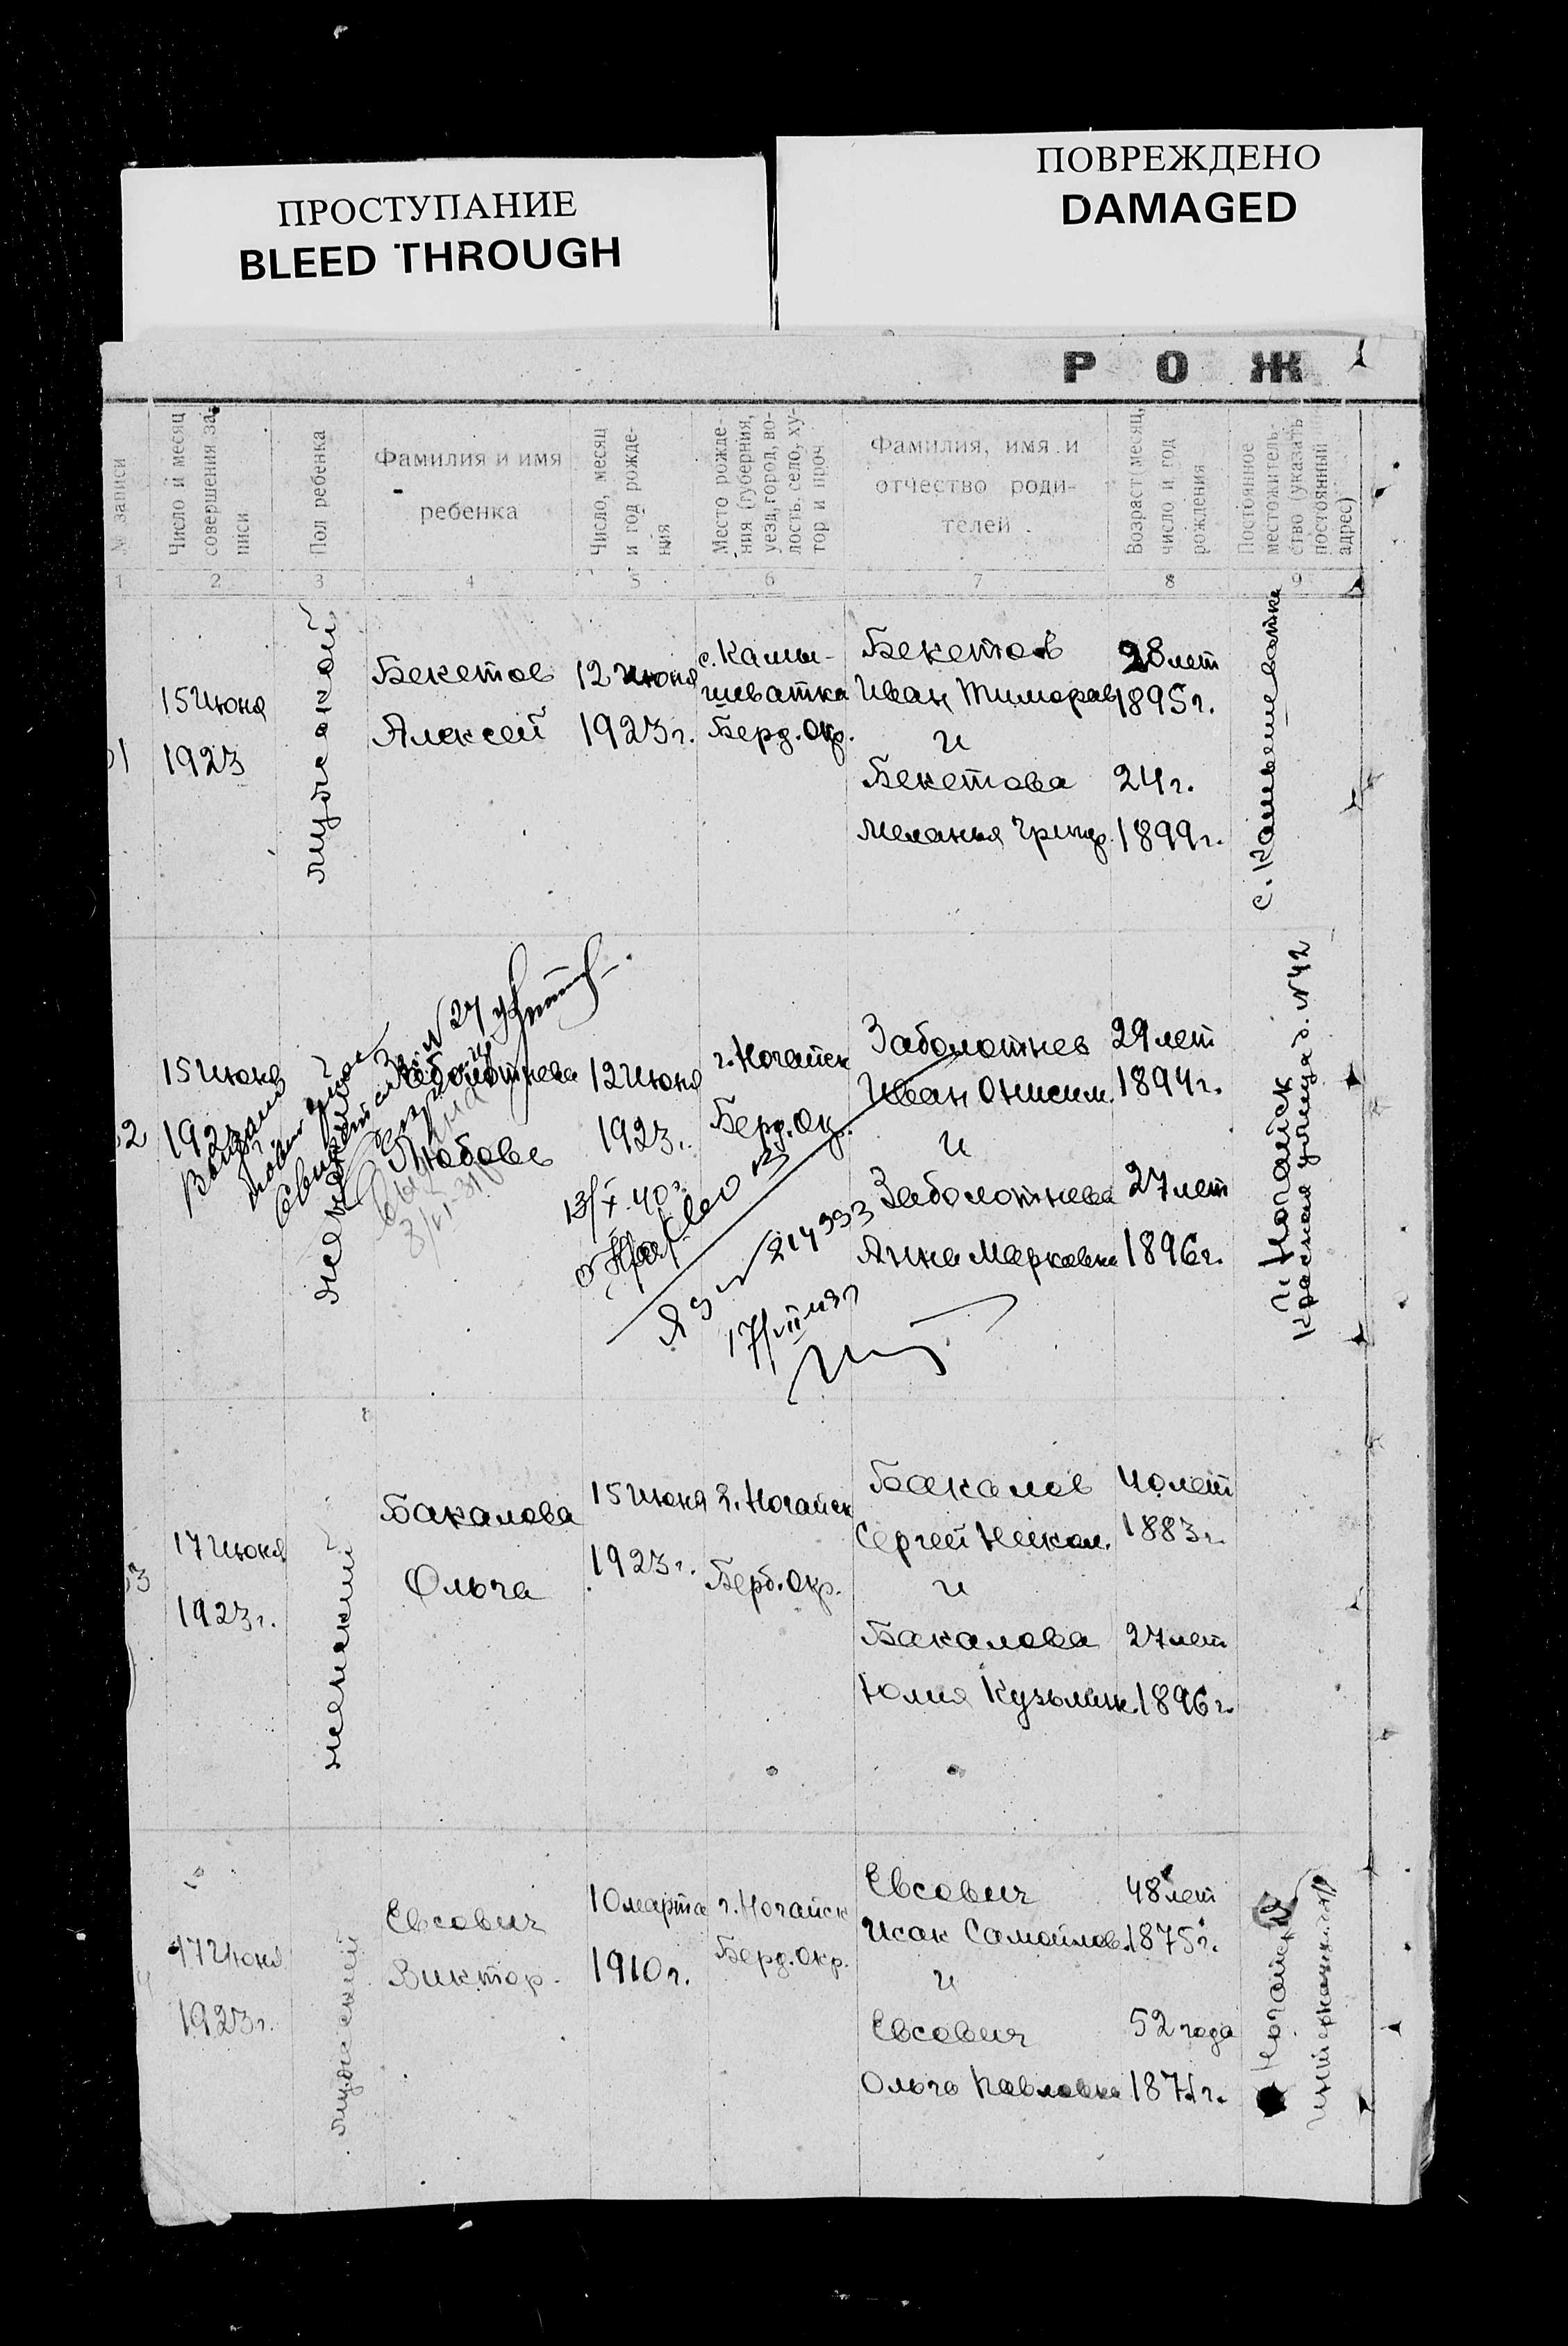 ПРОСТУПАНИЕ
BLEED THROUGH
ПОВРЕЖДЕНО
DAMAGED
Р О Ж
№ записи
Число и месяц
совершения за-
писи
Пол ребенка
Фамилия и имя
ребенка
Число, месяц
и год рожде-
ния
Место рожде-
ния (губерния,
уезд, город, во-
лость, село, ху-
тор и проч
Фамилия, имя и
отчество роди-
телей
Возраст (месяц,
число и год
рождения
Постоянное
местожитель-
ство (указать
постоянный
адрес)
1 2 3 4 5 6 7 8 9
1
15 Июня
1923
мужской
Бекетов
Алексей
12 Июня
1923 г.
с. Камы-
шеватка
Берд. Окр.
Бекетов
Иван Тимофев
и
Бекетова
Меланья Григор.
28 лет
1895 г.
24 г.
1899 г.
с. Камышеватка
2
15 Июня
1923
женский
Заболотнева
Любовь
12 Июня
1923 г.
г. Ногайск
Берд. Окр.
Заболотнев
Иван Онисим.
и
Заболотнева
Анна Марковна
29 лет
1894 г.
27 лет
1896 г.
г. Ногайск
Красная улица д. №42
№ 27
13/X-40 г
ЯЗ № 214993
3
17 Июня
1923 г.
женский
Бакалова
Ольга
15 Июня
1923 г.
г. Ногайск
Берд. Окр.
Бакалов
Сергей Никол.
и
Бакалова
Юлия Кузьмин.
40 лет
1883 г.
27 лет
1896 г.
17 Июня
1923 г.
мужской
Евсович
Виктор
10 марта
1910 г.
г. Ногайск
Берд. Окр.
Евсович
Исак Самойлов.
и
Евсович
Ольга Павловна
48 лет
1875 г.
52 года
1871 г.
Ногайск